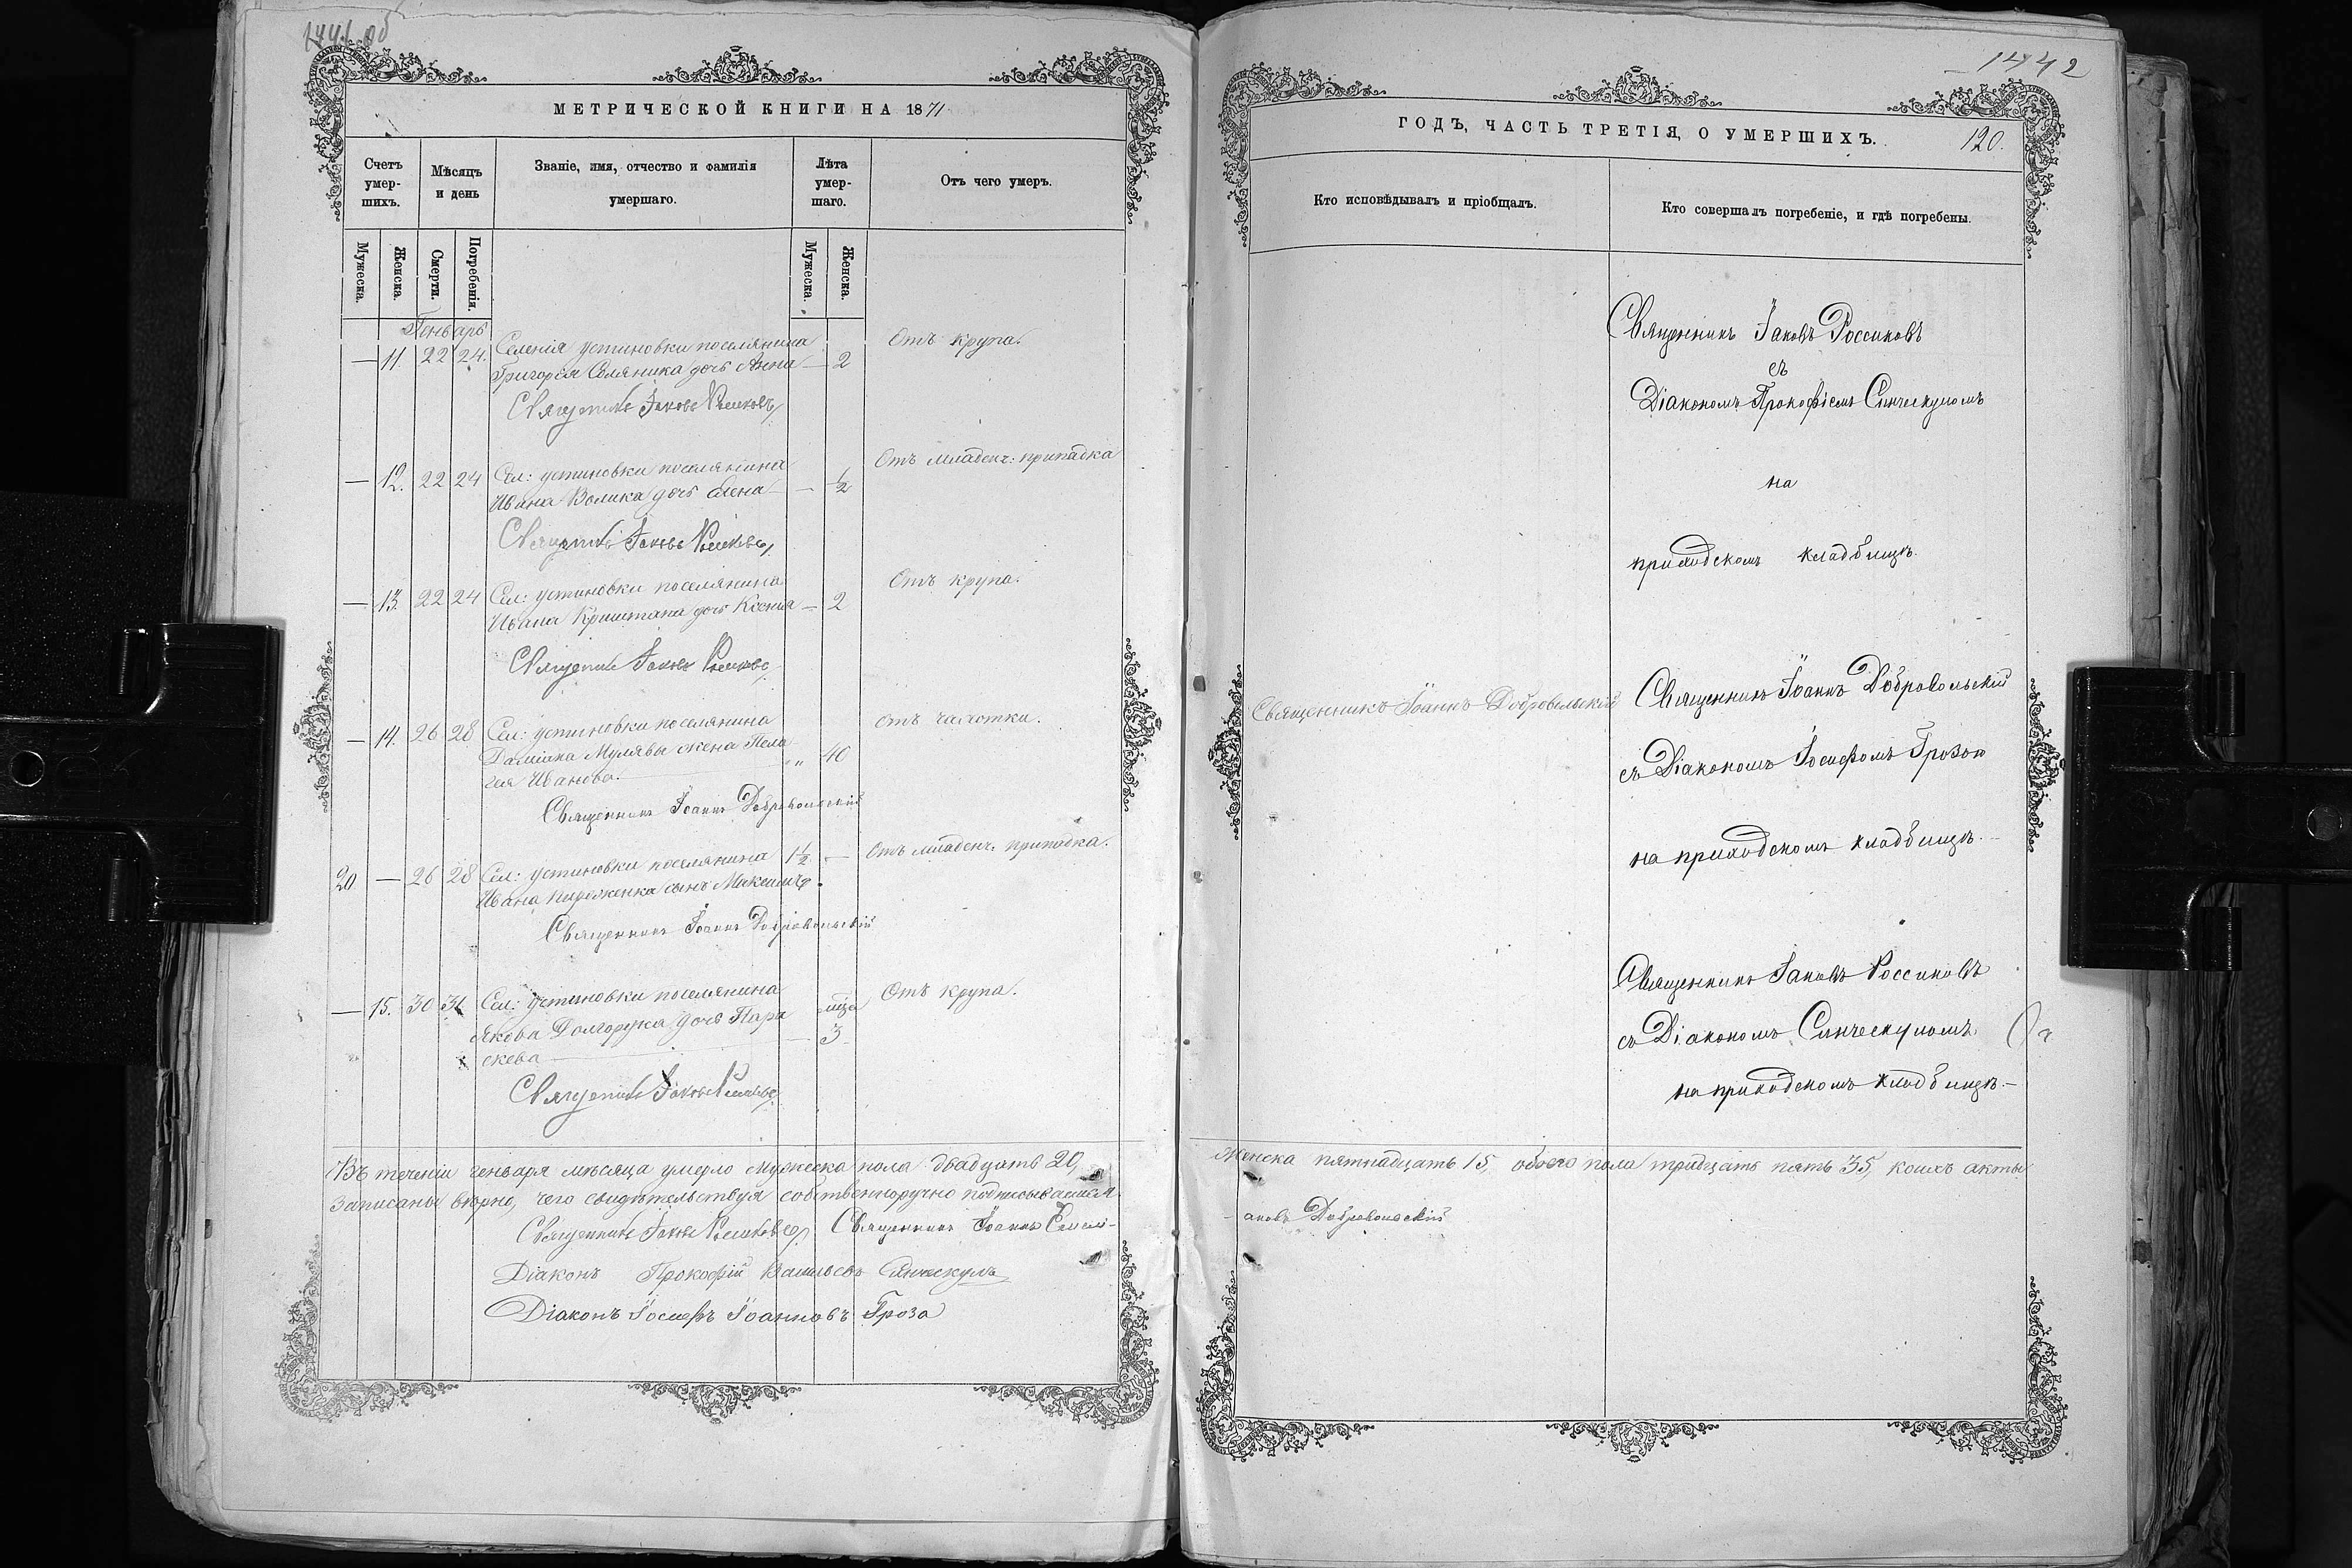 1441 об
МЕТРИЧЕСКОЙ КНИГИ НА 1871
Счетъ умер-
шихъ.
Мѣсяцъ
и день
Званіе, имя, отчество и фамилія
умершаго.
Лѣта
умер-
шаго.
Отъ чего умеръ.
Мужеска.
Женска.
Смерти.
Погребенія.
Мужеска.
Женска.
Генварь
— 11. 22 24. Селенія Устиновки поселянина — 2 Отъ крупа.
Григорія Соляника дочь Анна
Священникъ Іаковъ Россиковъ
— 12. 22 24 Сел: Устиновки поселянина — 1/2 Отъ младенч: припадка
Ивана Волика дочь Елена
Священникъ Іаковъ Россиковъ
— 13. 22 24 Сел: Устиновки поселянина — 2 Отъ крупа.
Ивана Криштана дочь Ксенія
Священникъ Іаковъ Россиковъ
— 14. 26 28 Сел: Устиновки поселянина „ 40 Отъ чахотки.
Мулявы жена Пела
гея Иванова.
Священникъ Іоаннъ Добровольскій
20 — 26 28 Сел: Устиновки поселянина 1 1/2 — Отъ младенч. припадка.
Ивана сынъ Максимъ
Священникъ Іоаннъ Добровольскій
— 15. 30 31 Сел: Устиновки поселянина мца Отъ крупа.
Якова Долгорука дочь Пара — 3
скева
Священникъ Іаковъ Россиковъ
Въ теченіи генваря мѣсяца умерло мужеска пола двадцать 20,
записаны вѣрно, чего свидѣтельствуя собственноручно подписываемся.
Священникъ Іаковъ Россиковъ Священникъ Іоаннъ
Діаконъ Прокофій Васильевъ Синческулъ
Діаконъ Іосифъ Іоанновъ Гроза
1442
ГОДЪ, ЧАСТЬ ТРЕТІЯ, О УМЕРШИХЪ.
120.
Кто исповѣдывалъ и пріобщалъ.
Кто совершалъ погребеніе, и гдѣ погребены.
Священникъ Іаковъ Россиковъ
съ
Діакономъ Прокофіемъ Синческуломъ
на
приходскомъ кладбищѣ.
Священникъ Іоаннъ Добровольскій
Священникъ Іоаннъ Добровольскій
съ Діакономъ Іосифомъ Грозою
на приходскомъ кладбищѣ.
Священникъ Іаковъ Россиковъ
съ Діакономъ Синческуломъ
на приходскомъ кладбищѣ.—
женска пятнадцать 15, обоего пола тридцать пять 35, коихъ акты
ановъ Добровольскій